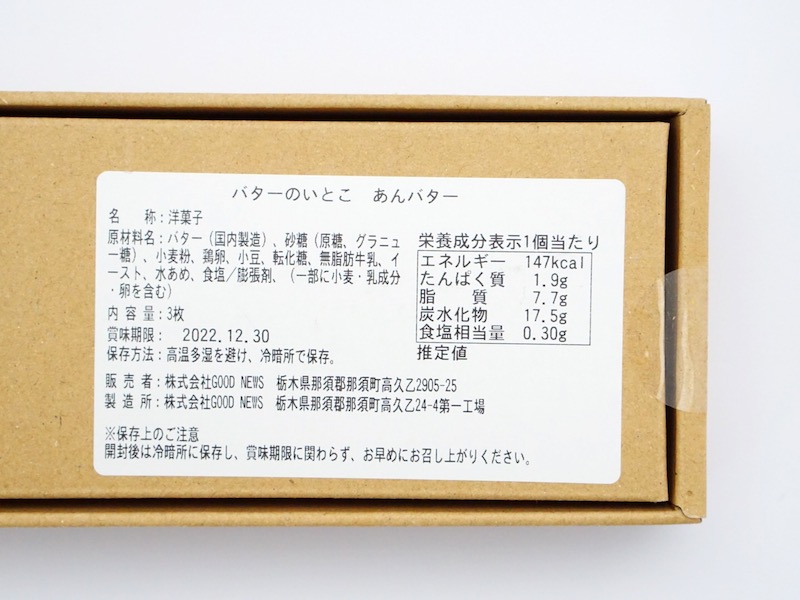 バターのいとこ　あんバター
名　　称：洋菓子
原材料名：バター（国内製造）、砂糖（原糖、グラニュ
ー糖）、小麦粉、鶏卵、小豆、転化糖、無脂肪牛乳、イ
ースト、水あめ、食塩／膨張剤、（一部に小麦・乳成分
・卵を含む）
内 容 量：3枚
賞味期限：　2022.12.30
保存方法：高温多湿を避け、冷暗所で保存。
栄養成分表示1個当たり
エネルギー　147kcal
たんぱく質　1.9g
脂　　質　7.7g
炭水化物　17.5g
食塩相当量　0.30g
推定値
販 売 者：株式会社GOOD NEWS　栃木県那須郡那須町高久乙2905-25
製 造 所：株式会社GOOD NEWS　栃木県那須郡那須町高久乙24-4第一工場
※保存上のご注意
開封後は冷暗所に保存し、賞味期限に関わらず、お早めにお召し上がりください。